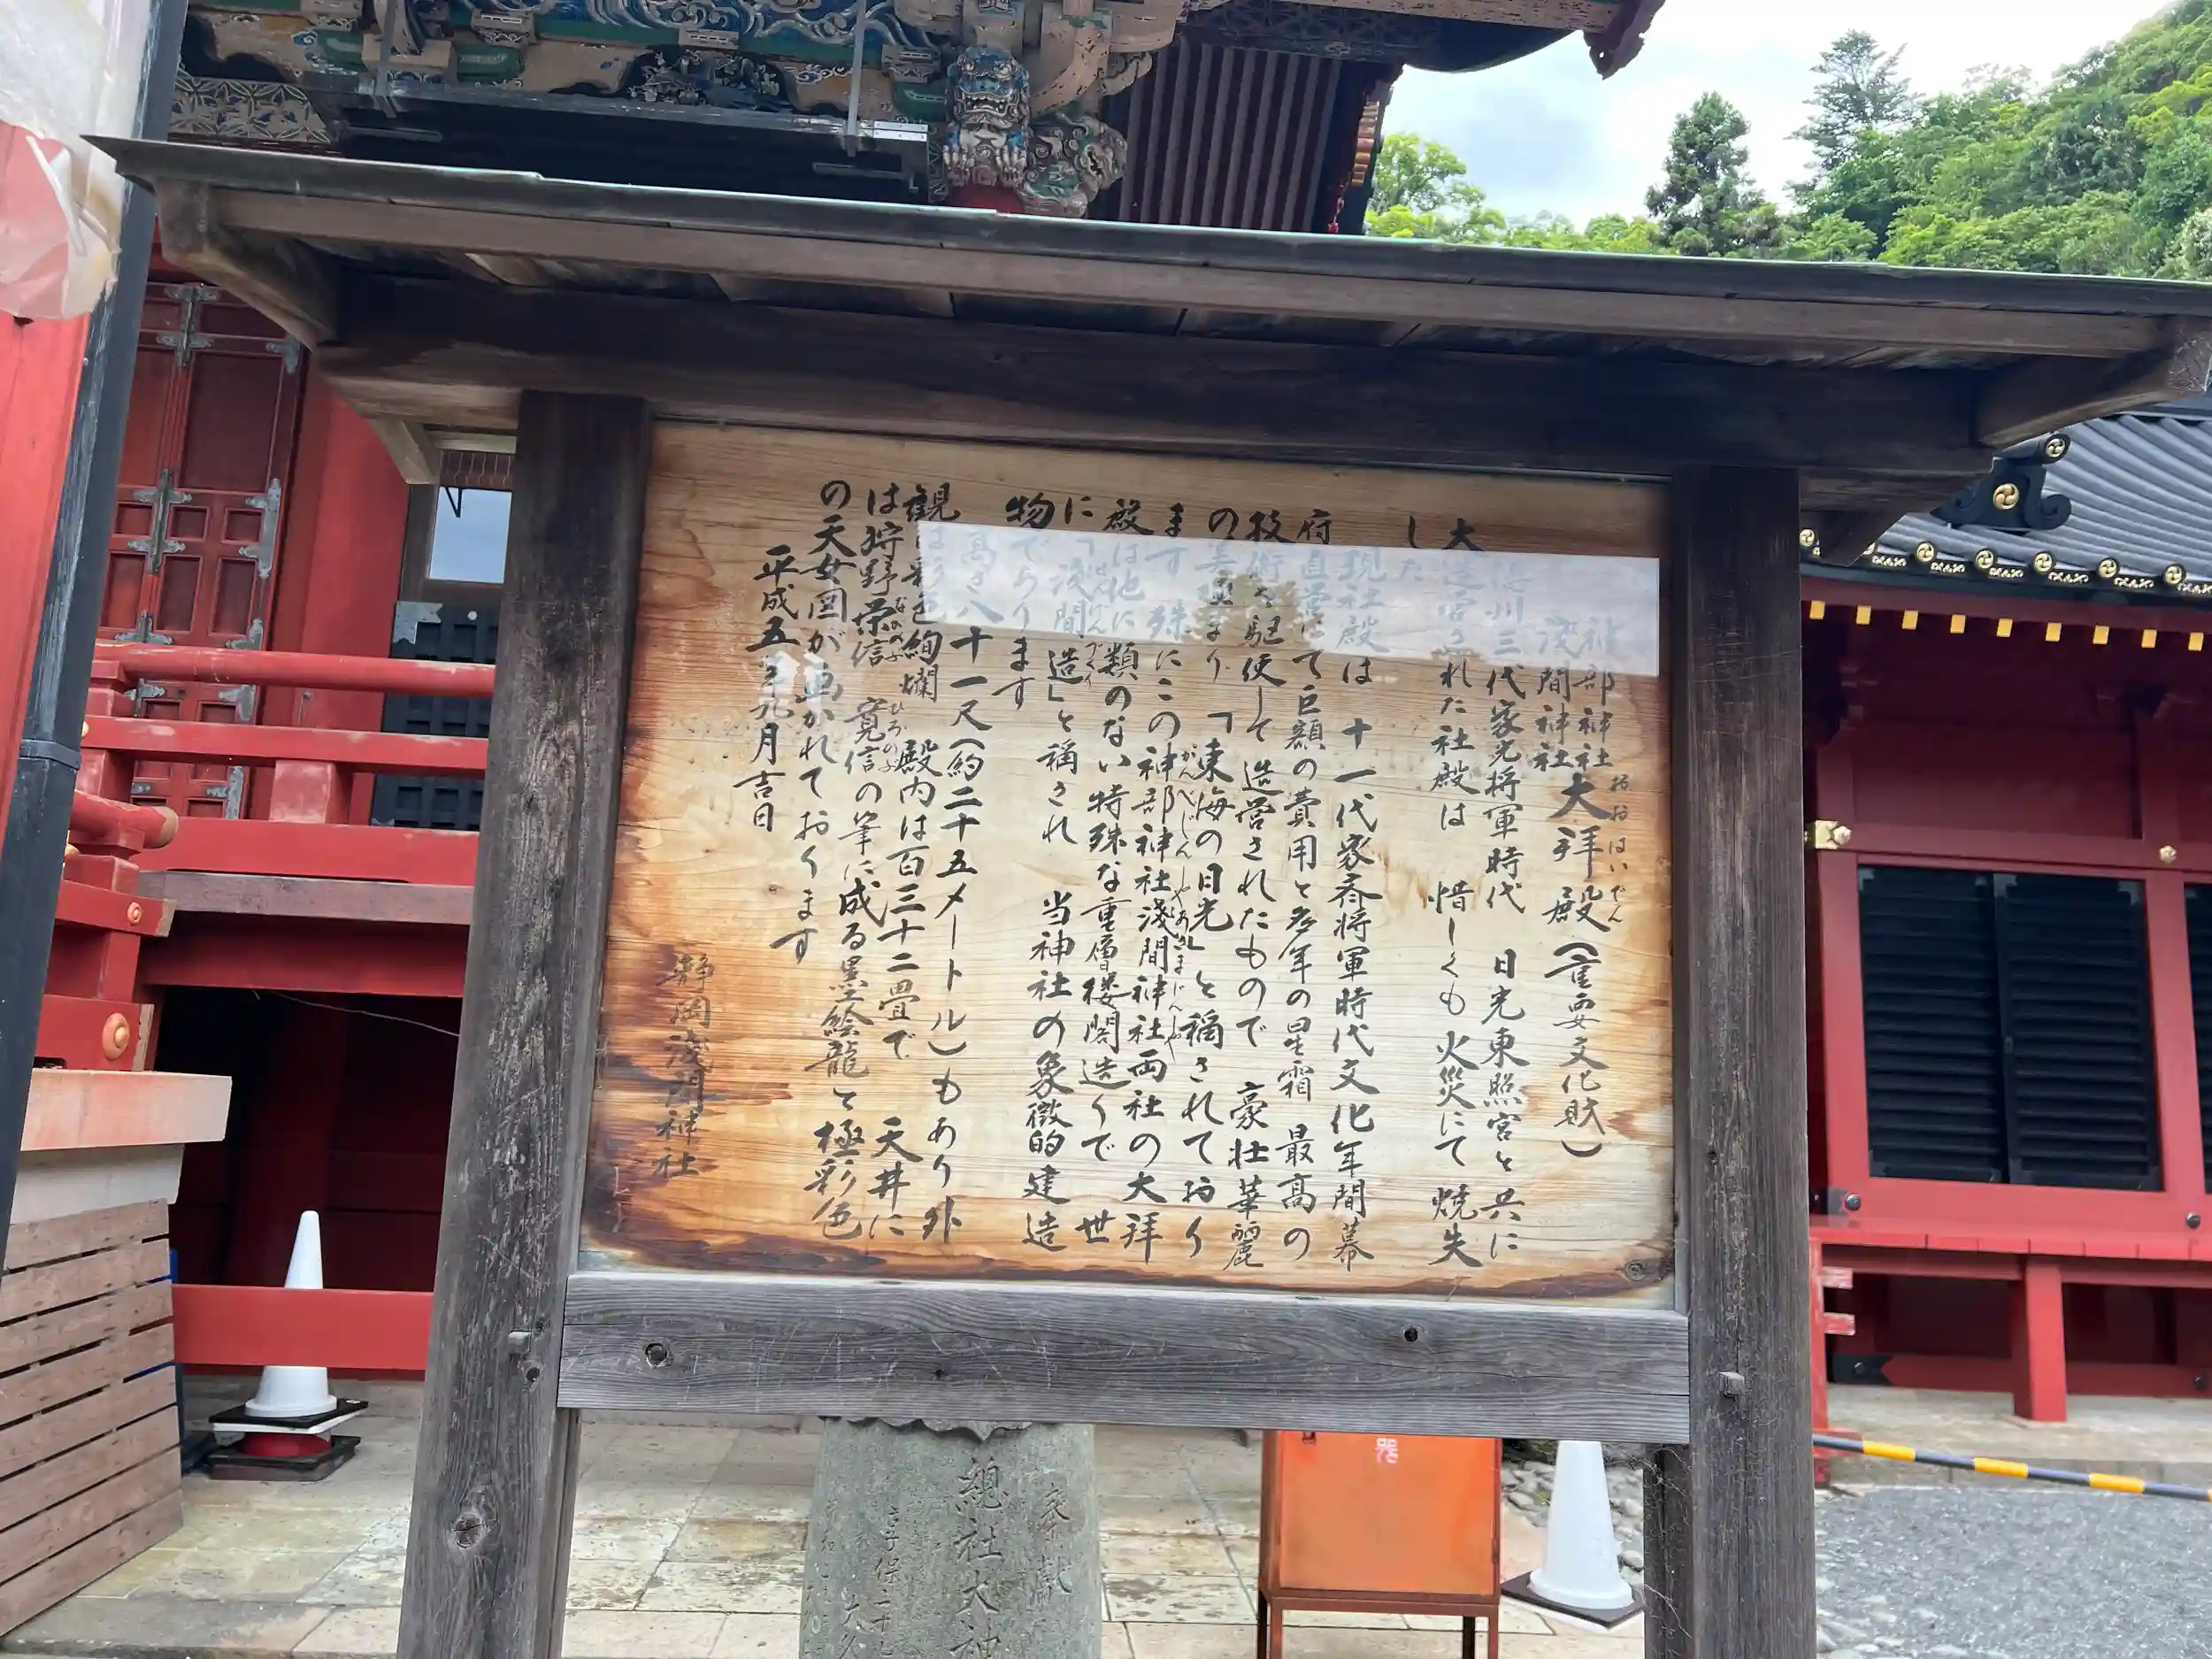 神部神社
浅間神社
大拝殿(重要文化財)
おおはいでん
州三代家光将軍時代 日光東照宮と共に
大造営された社殿は 惜しくも火災にて焼失
した
現社殿は 十一代家斉将軍時代文化年間幕
府直営にて巨額の費用と多年の星霜 最高の
技術を駆使して造営されたもので 豪壮華麗
の美極まり「東海の日光」と稱されており
ます 殊にこの神部神社浅間神社両社の大拝
かんべじんじゃあさまじんじゃ
殿は他に類のない特殊な重層楼閣造りで 世
に「浅間造」と稱され 当神社の象徴的建造
せんげんづくり
物であります
高さ八十一尺(約二十五メートル)もあり外
観は彩色絢爛 殿内は百三十二畳で 天井に
は狩野栄信 寛信の筆に成る墨絵龍と極彩色
ながのぶ ひろのぶ
の天女図が画かれております
平成五年九月吉日
静岡浅間神社
奉献
總社大神